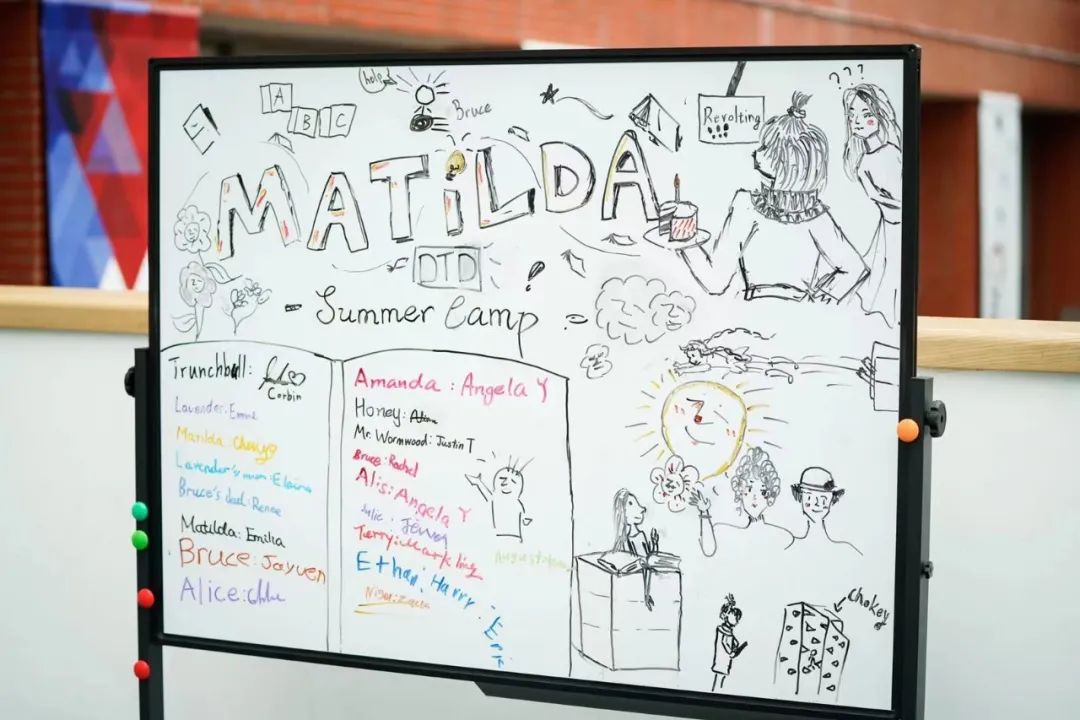 A
B C
hole
Bruce
Revolting
???
MATiLDA
DTD
!
- Summer Camp -
Trunchbull:
Corbin
Lavender: Emme
Matilda:
Lavender's mum: Elaina
Bruce's dad: Renee
Matilda: Emilia
Bruce: Jayven
Alice:
Amanda: Angela Y
Honey:
Mr. Wormwood: Justin T
Bruce: Rachel
Alis: Angela Y
Julie:
Terry: Mark ling
Ethan: Harry.
Nigel:
Chokey